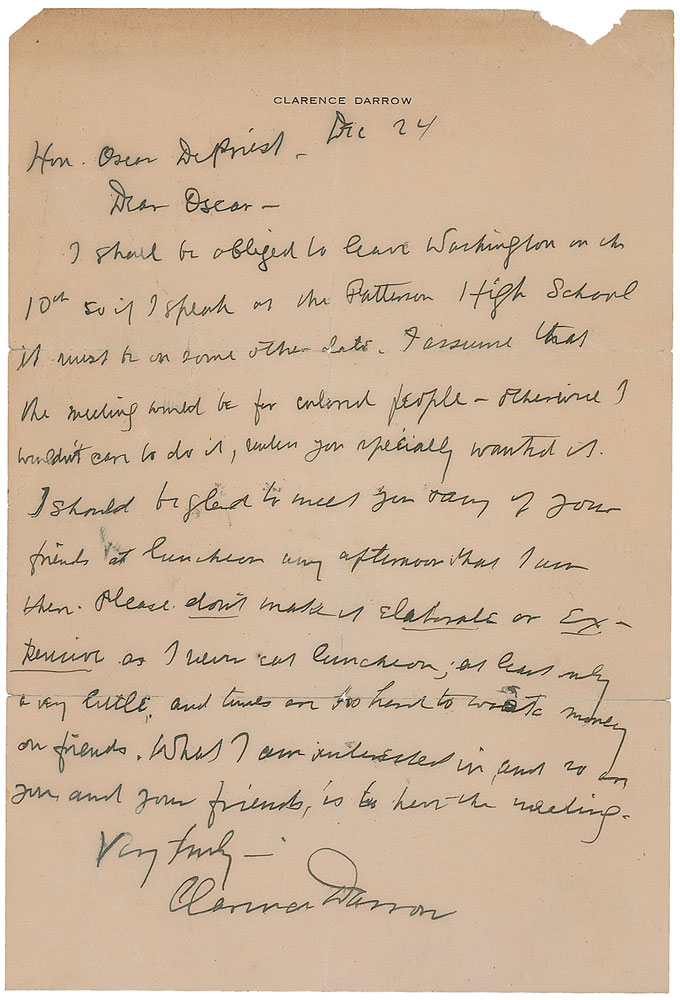 CLARENCE DARROW
Dec 24
Hon. Oscar DePriest -
Dear Oscar -
I shall be obliged to leave Washington on the
10th so if I speak at the Patterson High School
it must be on some other date. I assume that
the meeting would be for colored people - otherwise I
wouldn't care to do it, unless you specially wanted it.
I should be glad to meet you & any of your
friends at luncheon any afternoon that I am
there. Please don't make it elaborate or ex-
pensive as I never eat luncheon, at least only
a very little, and times are too hard to waste money
on friends. What I am interested in, and so are
you and your friends, is to have the meeting.
Very truly -
Clarence Darrow